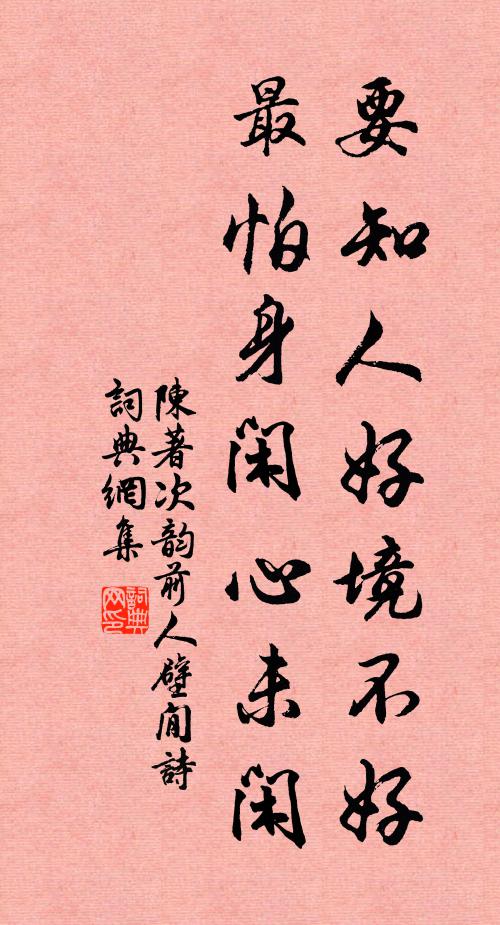 要知人好境不好
最怕身閑心未閑
陳著次韵前人壁間詩
詞典網集
詞典
网印